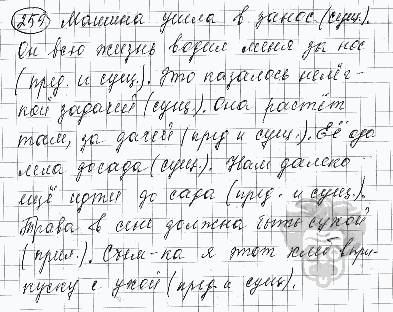 (259) Машина ушла в занос (сущ.).
Он всю жизнь водил меня за нос
(пред. и сущ.). Это казалось нелёг-
кой задачей (сущ.). Она растёт
там, за дачей (пред и сущ.). Её одо
лела досада (сущ.). Нам далеко
ещё идти до сада (пред. и сущ.).
Трава в сене должна быть сухой
(прил.). Съем-ка я этот хлеб впри-
куску с ухой (пред. и сущ).